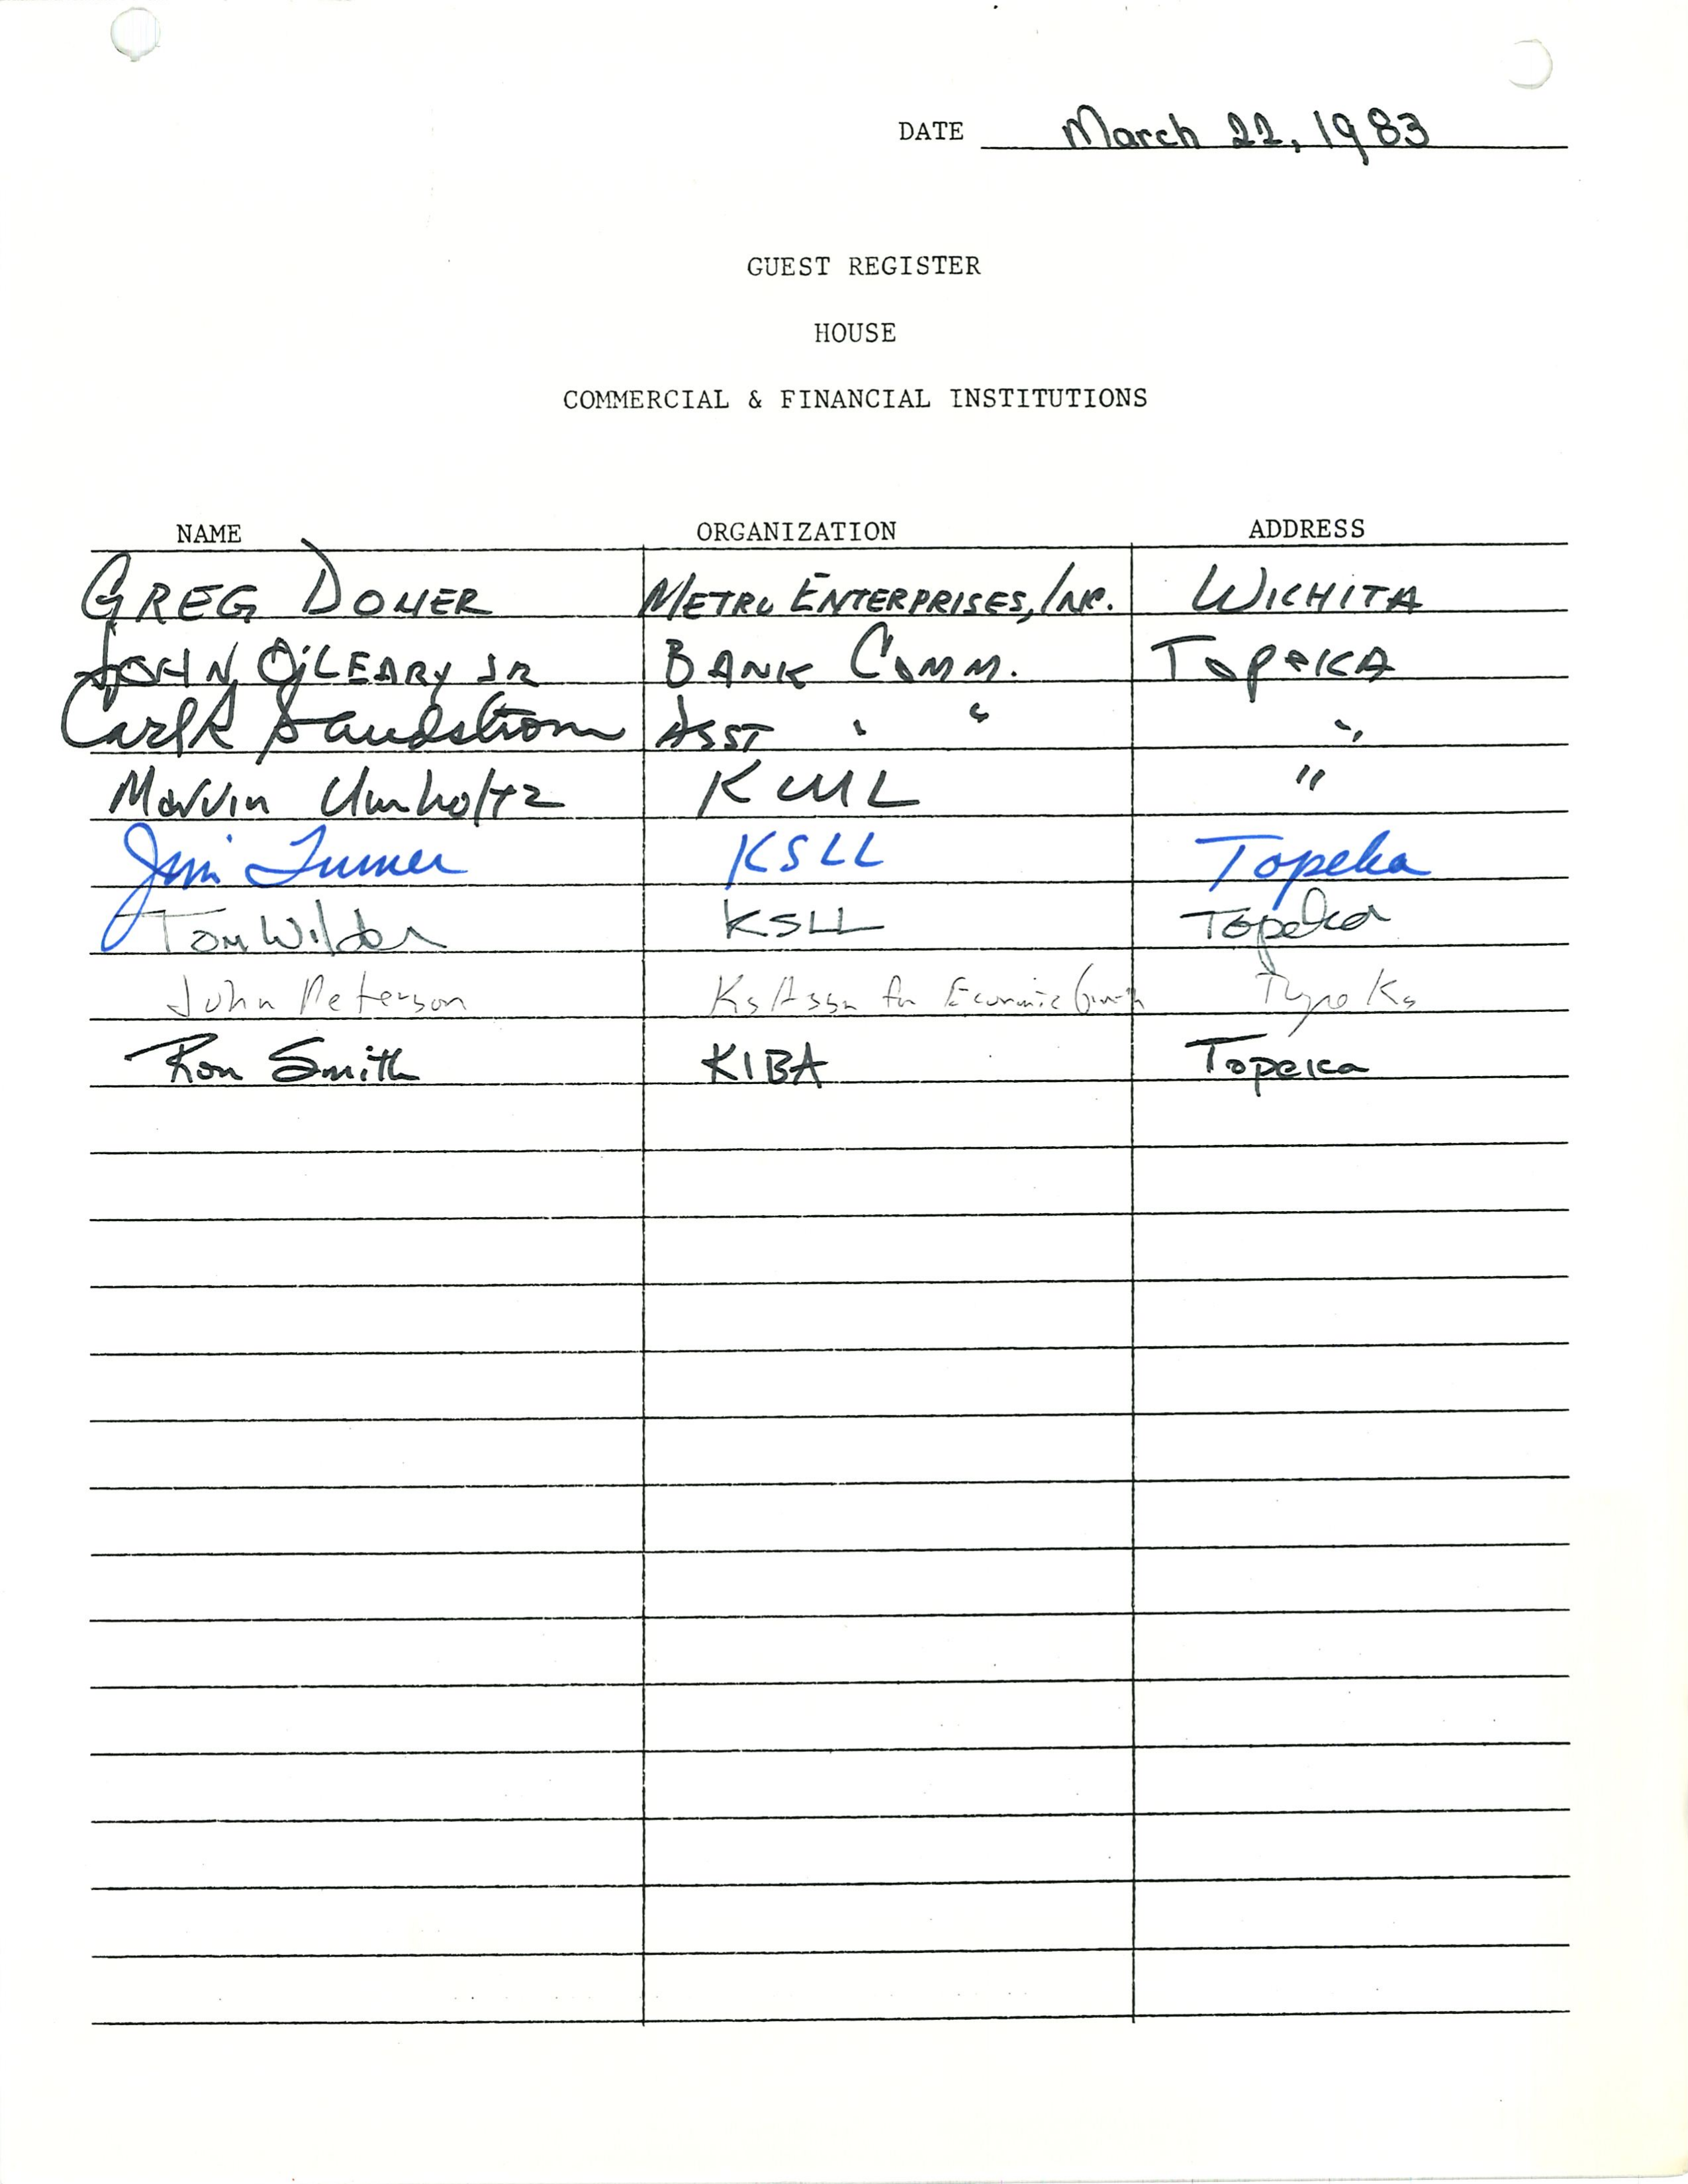 DATE March 22, 1983
GUEST REGISTER
HOUSE
COMMERCIAL & FINANCIAL INSTITUTIONS
NAME ORGANIZATION ADDRESS
GREG METRO ENTERPRISES, INC. WICHITA
JOHN O'LEARY JR BANK COMM. TOPEKA
Carl R Sandstrom ASST " " "
Marvin Umholtz KCUL "
Jim Turner KSLL Topeka
Tom Wilder KSLL Topeka
John Peterson Ks Assn for Economic Growth Ks
Ron Smith KIBA Topeka